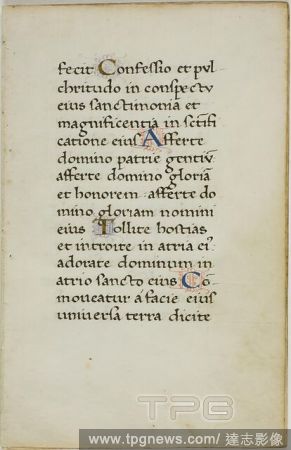 fecit Confessio et pvl
chritudo in conspectv
eius sanctimonia et
magnificentia in sctifi
catione eius Afferte
domino patrie gentiv̄
afferte domino gloriā
et honorem afferte do
mino gloriam nomini
eius Tollite hostias
et introite in atria ei⁹
adorate dominum in
atrio sancto eius Cō
moveatur á facie eius
universa terra dicite
TPG
www.tpgnews.com / 達志影像